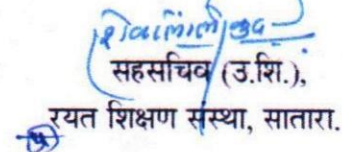 सहसचिव (उ.शि.),
रयत शिक्षण संस्था, सातारा.